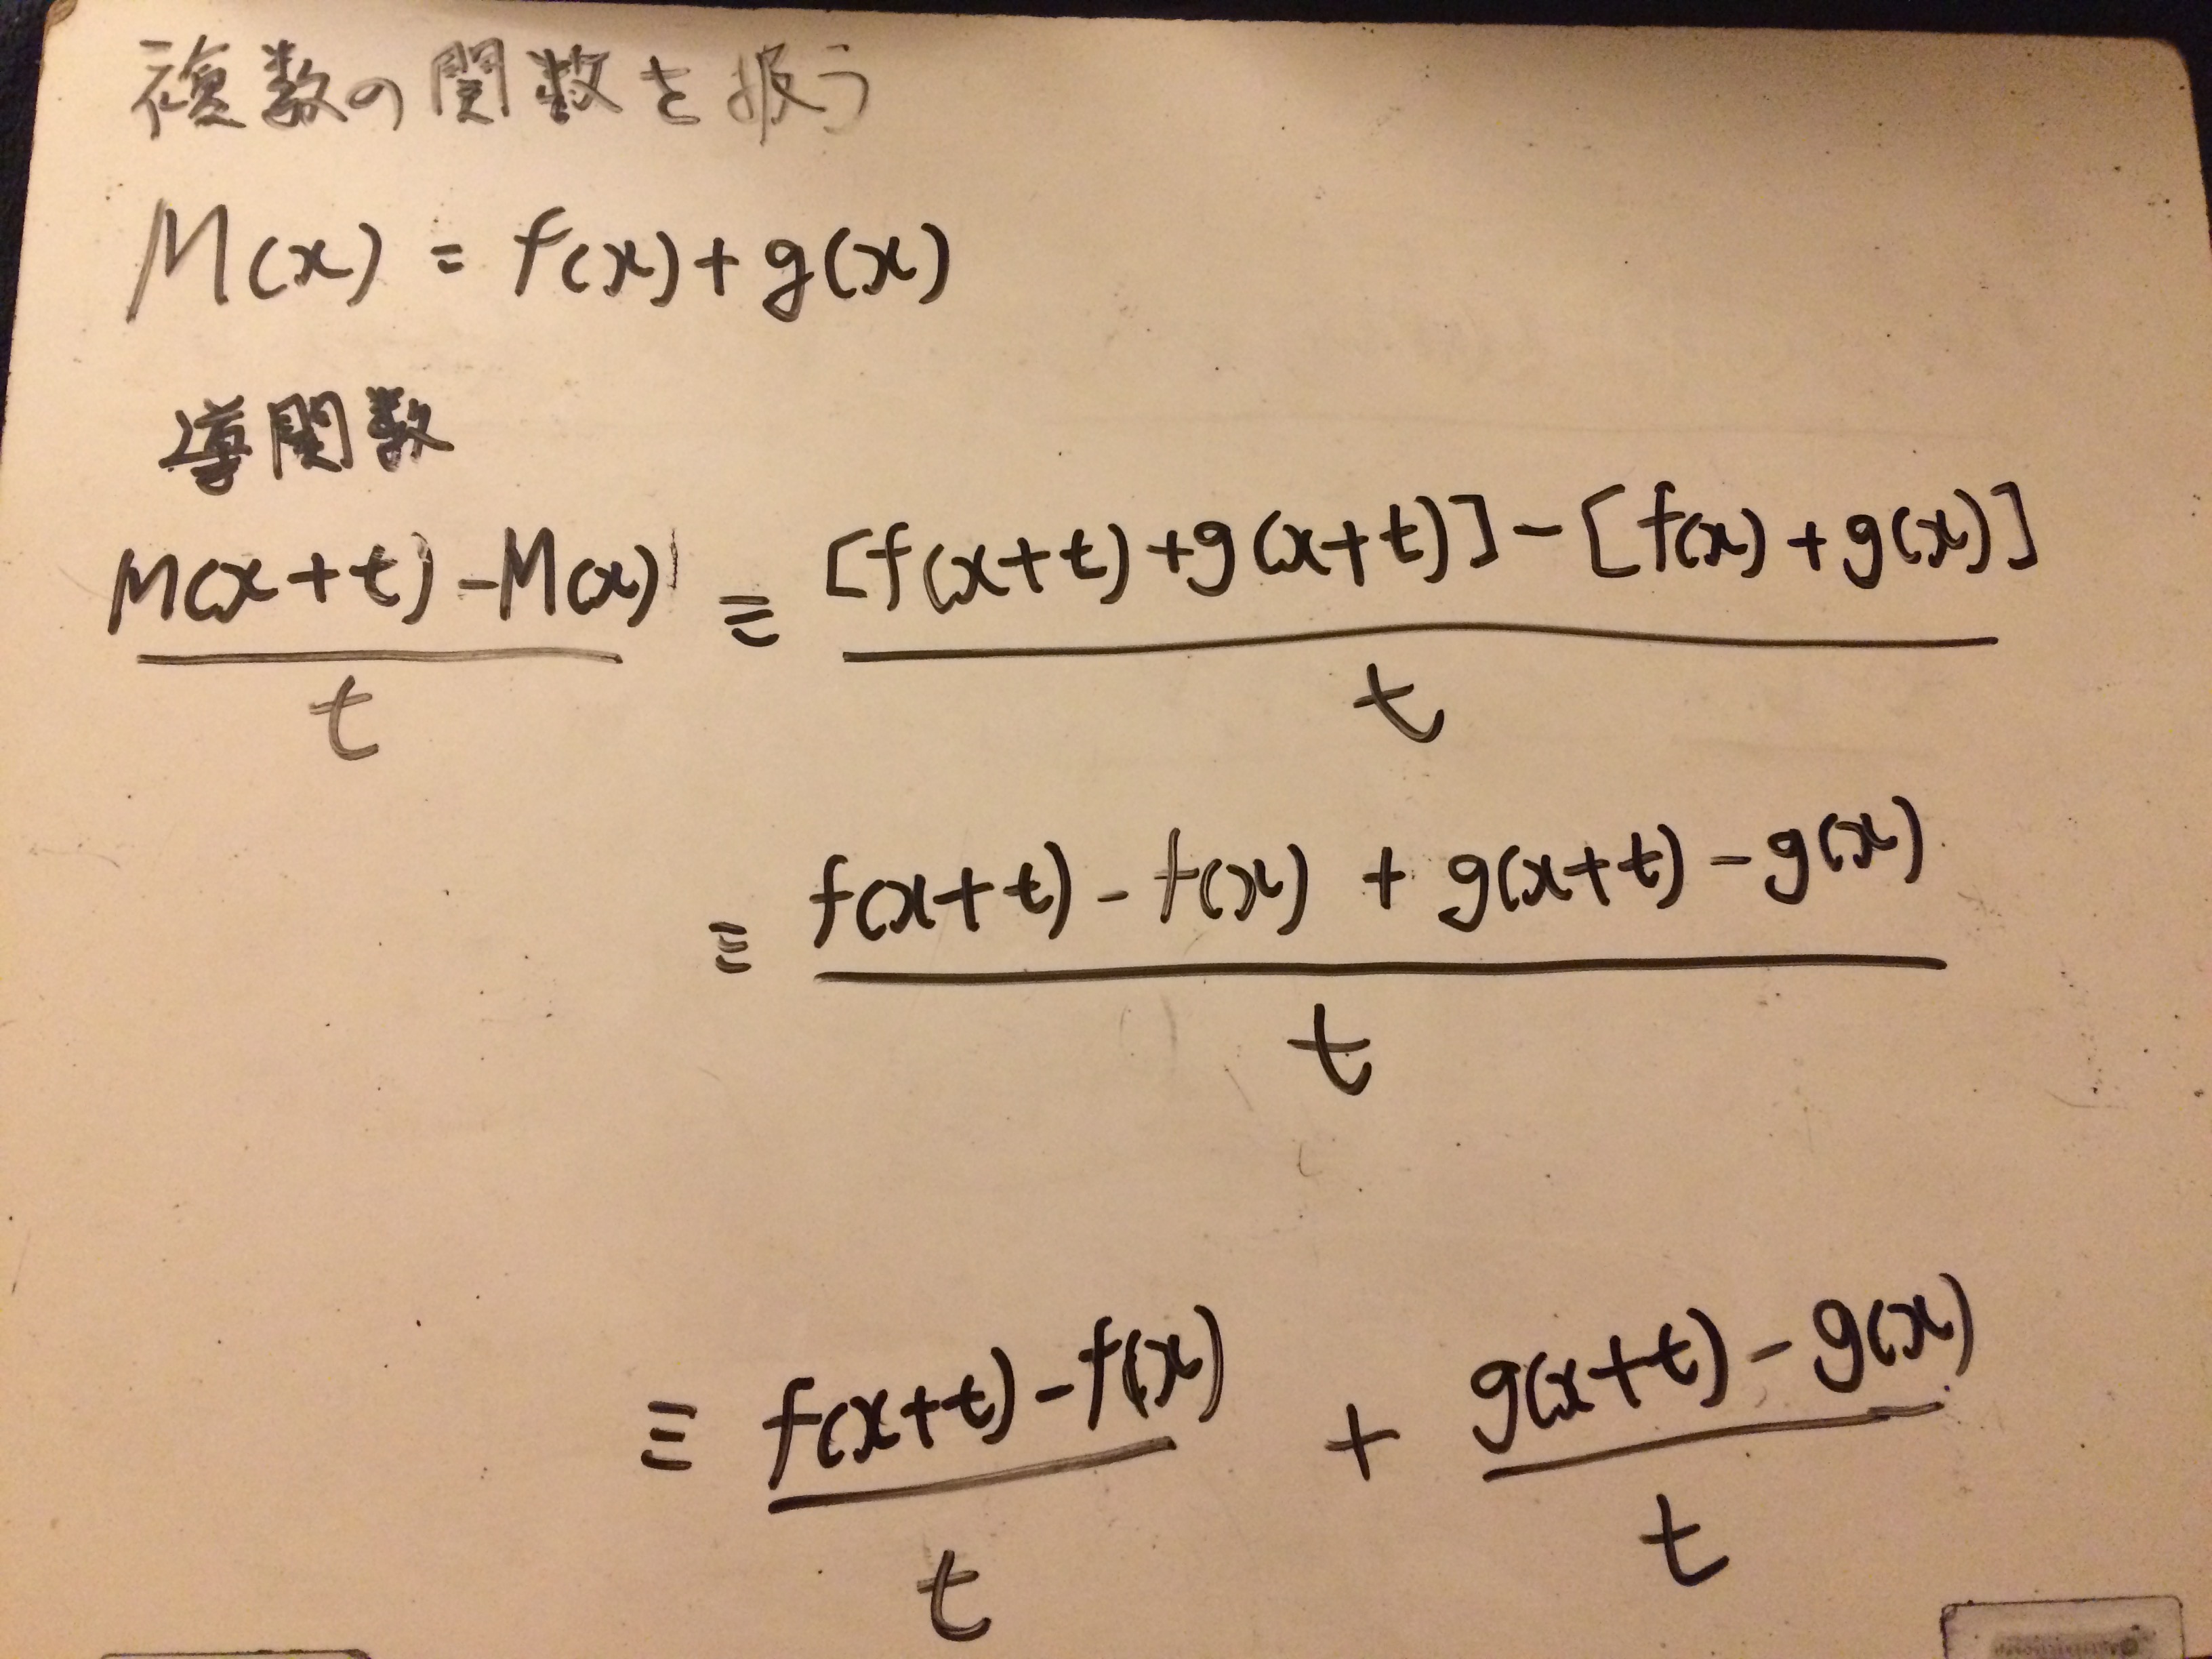 複数の関数を扱う
M(x) = f(x) + g(x)
導関数
M(x+t) - M(x) / t ≡ [f(x+t) + g(x+t)] - [f(x) + g(x)] / t
≡ f(x+t) - f(x) + g(x+t) - g(x) / t
≡ f(x+t) - f(x) / t + g(x+t) - g(x) / t